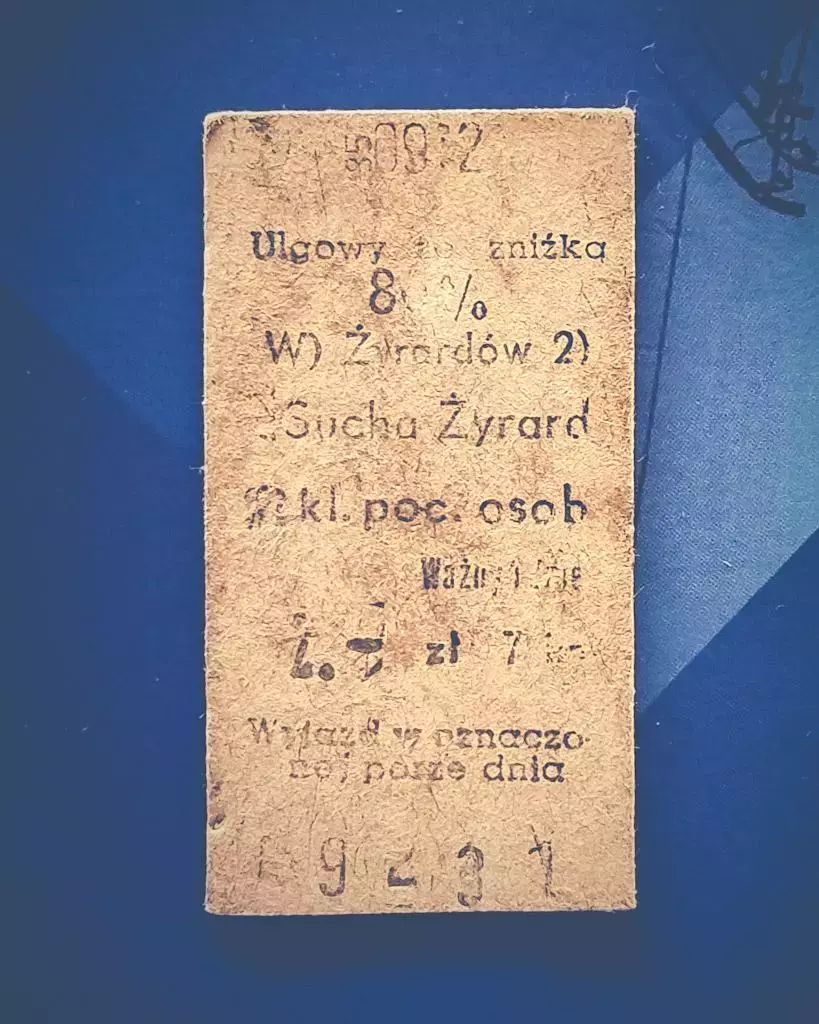 Ulgowy ze zniżką
80%
W) Żyrardów 2)
Sucha Żyrard
2 kl. poc. osob
zł 7 km
Wyjazd w oznaczo-
nej porze dnia
9231